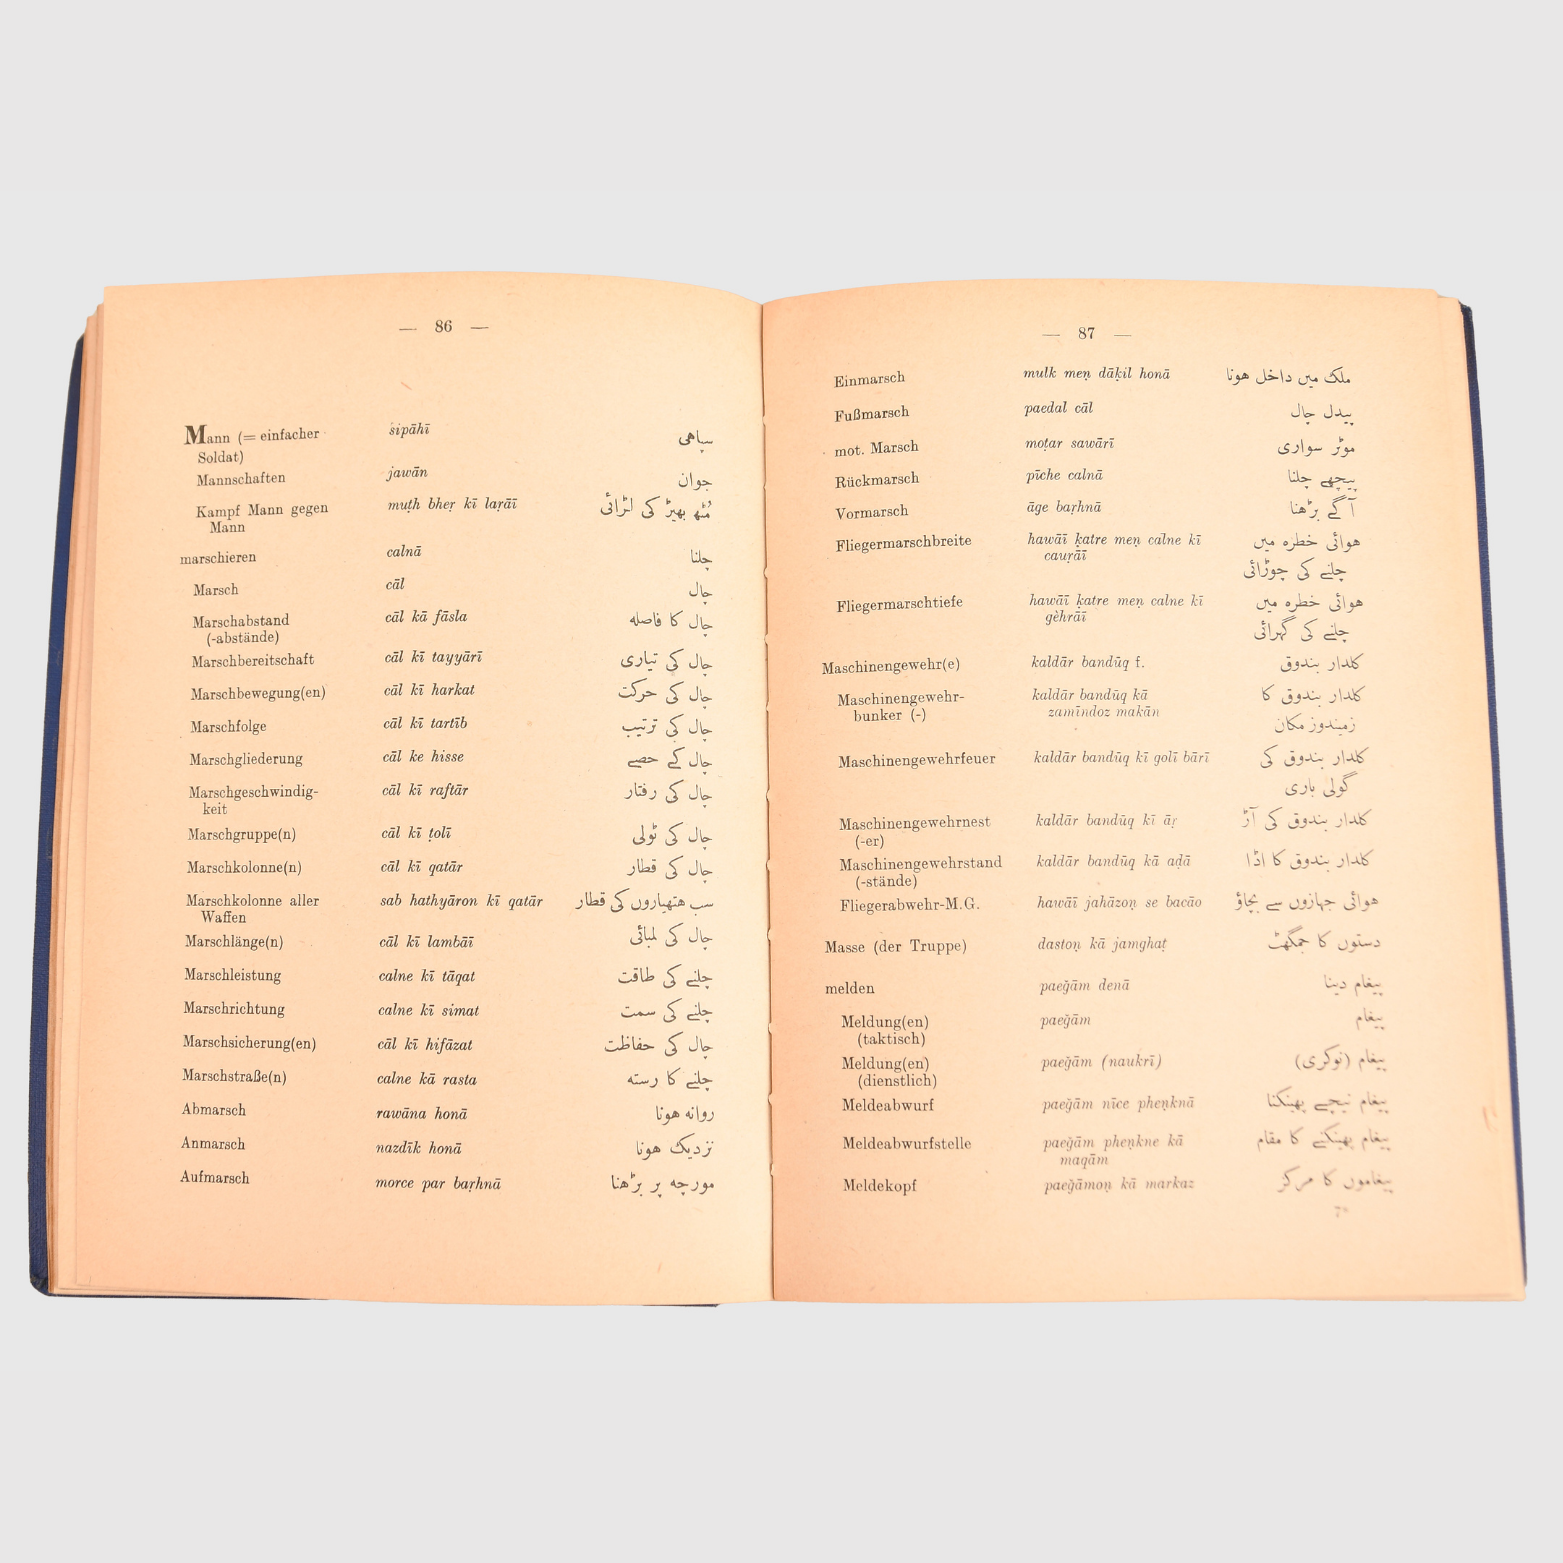 — 86 —
Mann (= einfacher sipāhī سپاهی
Soldat)
Mannschaften jawān جوان
Kampf Mann gegen muṭh bheṛ kī laṛāī مُٹھ بھیڑ کی لڑائی
Mann
marschieren calnā چلنا
Marsch cāl چال
Marschabstand cāl kā fāsla چال کا فاصله
(-abstände)
Marschbereitschaft cāl kī tayyārī چال کی تیاری
Marschbewegung(en) cāl kī harkat چال کی حرکت
Marschfolge cāl kī tartīb چال کی ترتیب
Marschgliederung cāl ke hisse چال کے حصے
Marschgeschwindig- cāl kī raftār چال کی رفتار
keit
Marschgruppe(n) cāl kī ṭolī چال کی ٹولی
Marschkolonne(n) cāl kī qatār چال کی قطار
Marschkolonne aller sab hathyāron kī qatār سب هتھیاروں کی قطار
Waffen
Marschlänge(n) cāl kī lambāī چال کی لمبائی
Marschleistung calne kī tāqat چلنے کی طاقت
Marschrichtung calne kī simat چلنے کی سمت
Marschsicherung(en) cāl kī hifāzat چال کی حفاظت
Marschstraße(n) calne kā rasta چلنے کا رسته
Abmarsch rawāna honā روانه هونا
Anmarsch nazdīk honā نزدیک هونا
Aufmarsch morce par baṛhnā مورچه پر بڑهنا
— 87 —
Einmarsch mulk meṇ dāḵil honā ملک میں داخل هونا
Fußmarsch paedal cāl پیدل چال
mot. Marsch moṭar sawārī موٹر سواری
Rückmarsch pīche calnā پیچھے چلنا
Vormarsch āge baṛhnā آگے بڑهنا
Fliegermarschbreite hawāī ḵatre meṇ calne kī هوائی خطره میں
cauṛāī چلنے کی چوڑائی
Fliegermarschtiefe hawāī ḵatre meṇ calne kī هوائی خطره میں
gèhrāī چلنے کی گہرائی
Maschinengewehr(e) kaldār bandūq f. کلدار بندوق
Maschinengewehr- kaldār bandūq kā کلدار بندوق کا
bunker (-) zamīndoz makān زمیندوز مکان
Maschinengewehrfeuer kaldār bandūq kī golī bārī کلدار بندوق کی
گولی باری
Maschinengewehrnest kaldār bandūq kī āṛ کلدار بندوق کی آڑ
(-er)
Maschinengewehrstand kaldār bandūq kā aḍā کلدار بندوق کا اڈا
(-stände)
Fliegerabwehr-M.G. hawāī jahāzoṇ se bacāo هوائی جہازوں سے بچاؤ
Masse (der Truppe) dastoṇ kā jamghaṭ دستوں کا جمگھٹ
melden paeḡām denā پیغام دینا
Meldung(en) paeḡām پیغام
(taktisch)
Meldung(en) paeḡām (naukrī) پیغام (نوکری)
(dienstlich)
Meldeabwurf paeḡām nīce pheṇknā پیغام نیچے پھینکنا
Meldeabwurfstelle paeḡām pheṇkne kā پیغام پھینکنے کا مقام
maqām
Meldekopf paeḡāmoṇ kā markaz پیغاموں کا مرکز